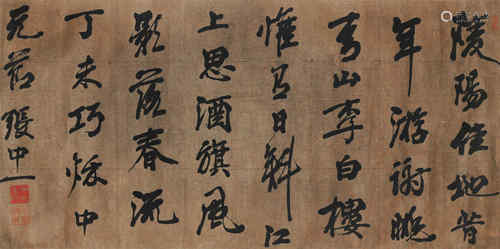 陵陽佳地昔
年游謝朓
青山李白樓
惟有日斜江
上思酒旗風
影落春流
丁未巧秋中
張中一